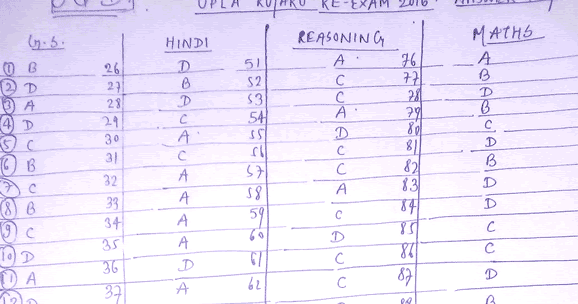 UPLA KUJAKU RE-EXAM 2016
G.S. HINDI REASONING MATHS
1 B 26 D 51 A 76 A
2 D 27 B 52 C 77 B
3 A 28 D 53 C 78 D
4 D 29 C 54 A 79 B
5 C 30 A 55 D 80 C
6 B 31 C 56 C 81 D
7 C 32 A 57 C 82 B
8 B 33 A 58 A 83 D
9 C 34 A 59 C 84 D
10 D 35 A 60 D 85 C
11 A 36 D 61 C 86 C
37 A 62 C 87 D
B